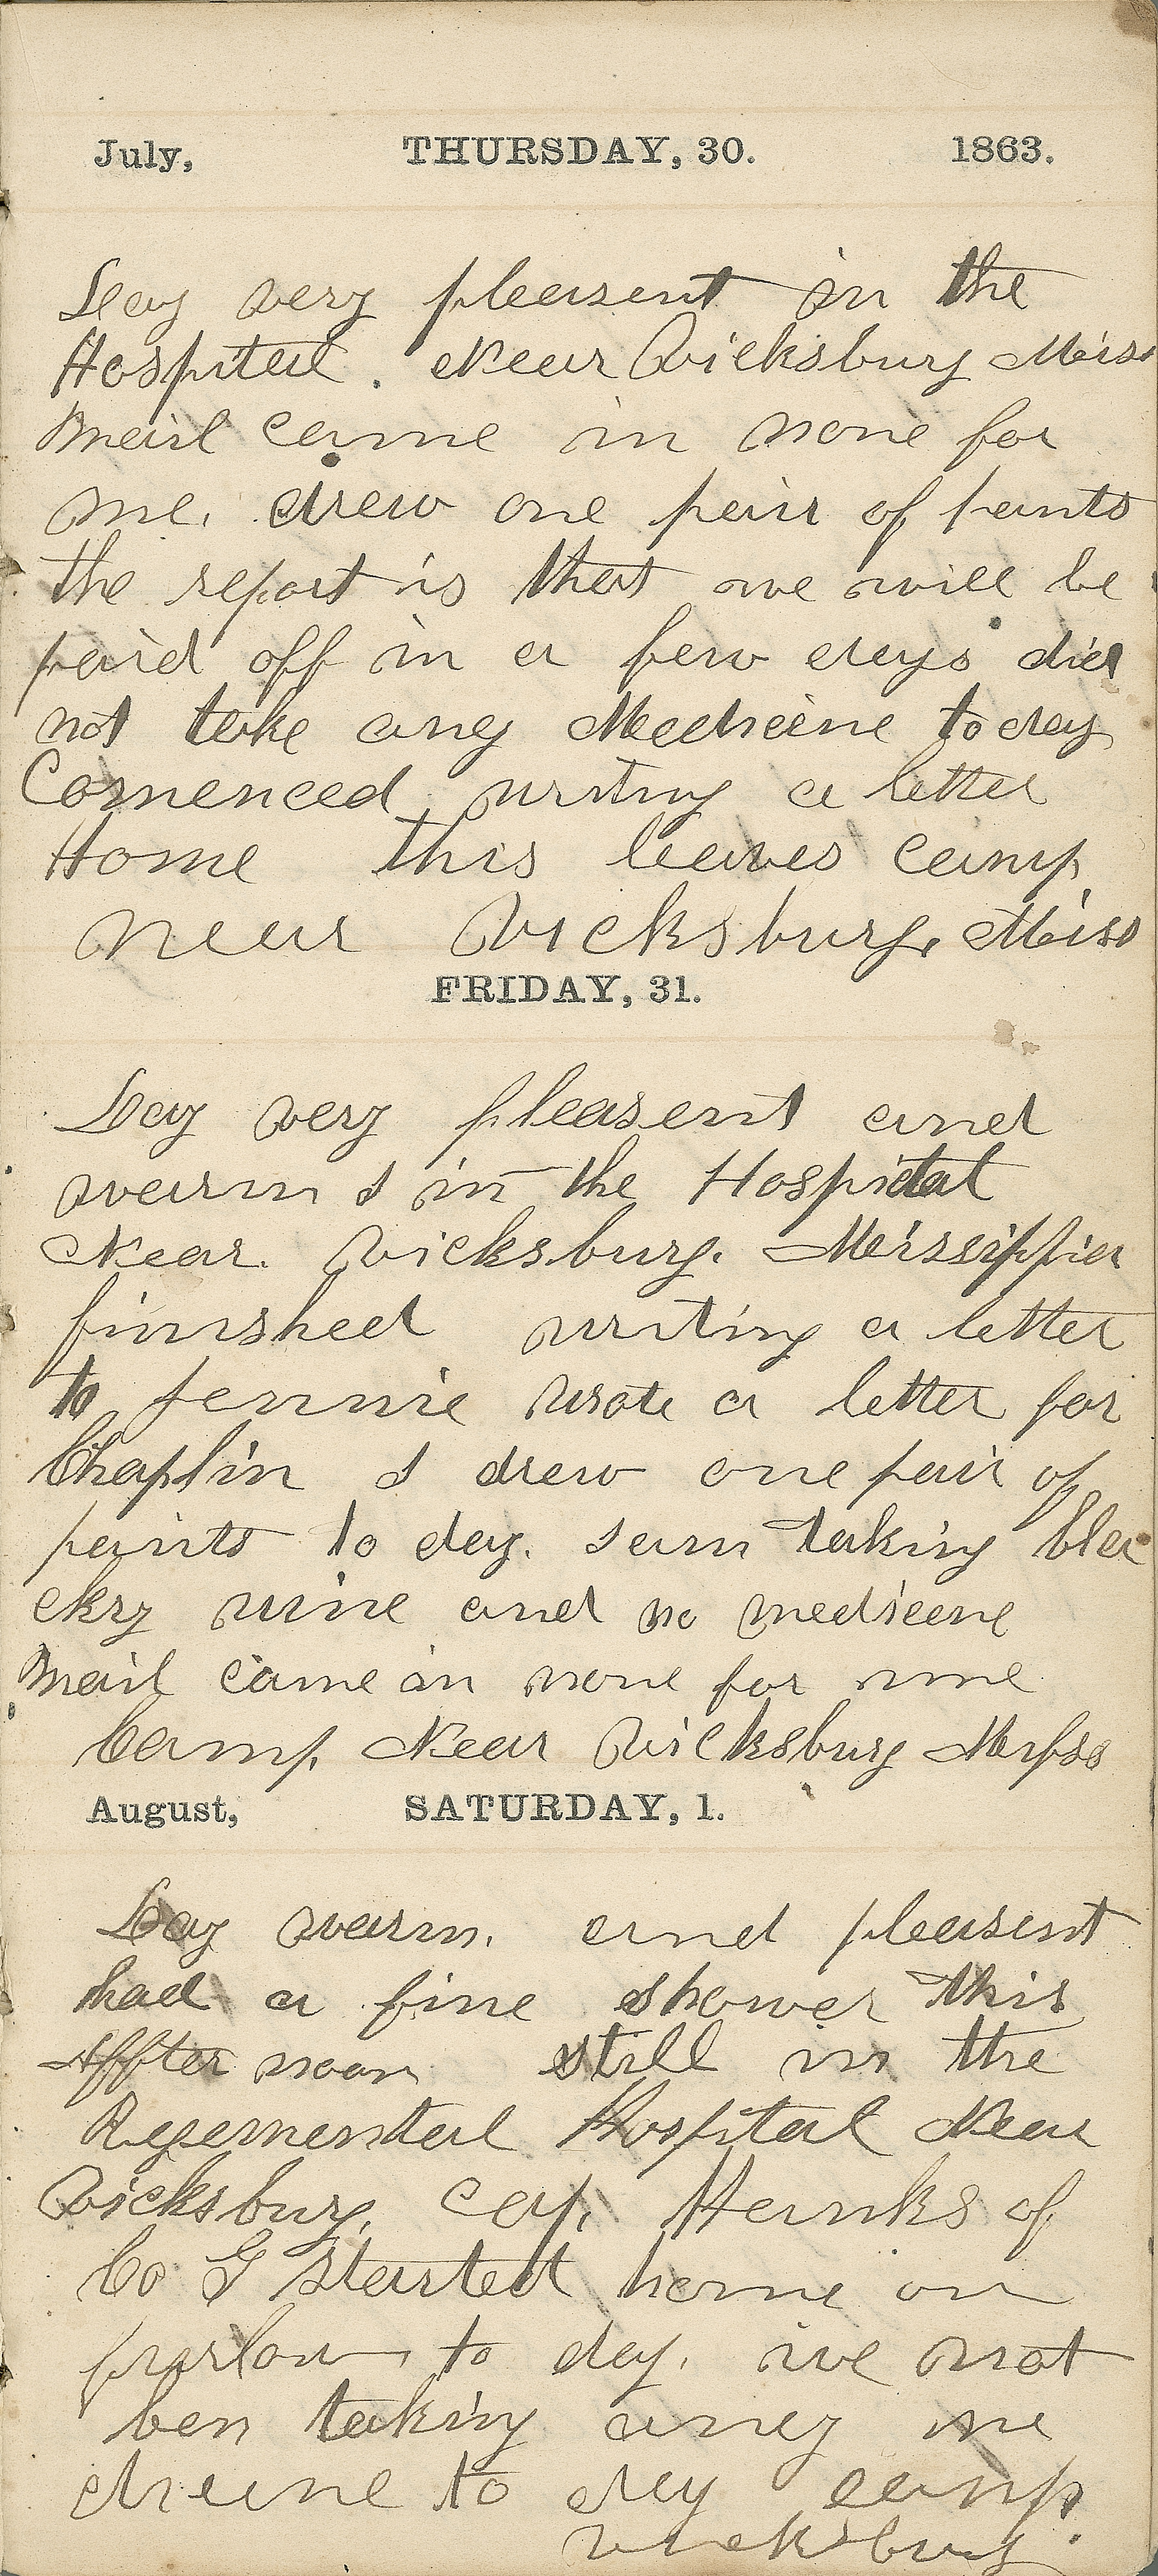 July, THURSDAY, 30. 1863.
Day very pleasent in the
Hospital. Near Vicksburg Miss
Mail came in none for
me. drew one pair of pants
the report is that we will be
paid off in a few days did
not take any Medicine to day
Comenced writing a letter
Home this leaves camp
near Vicksburg, Miss
FRIDAY, 31.
Day very pleasent and
warm I in the Hospital
Near. Vicksburg. Missippia
finished writing a letter
to fennie wrote a letter for
Chaplin I drew one pair of
paints to day. I am taking bla
ckry wine and no mediceene
Mail came in none for me
Camp Near Vicksburg Miss
August, SATURDAY, 1.
Day warm. and pleasent
had a fine shower this
Affter noon still in the
Regemental Hospital Near
Vicksburg, Cap. Hanks of
Co G started home on
furlow to day. ive not
ben taking aney me
diceene to day camp
vicksburg.